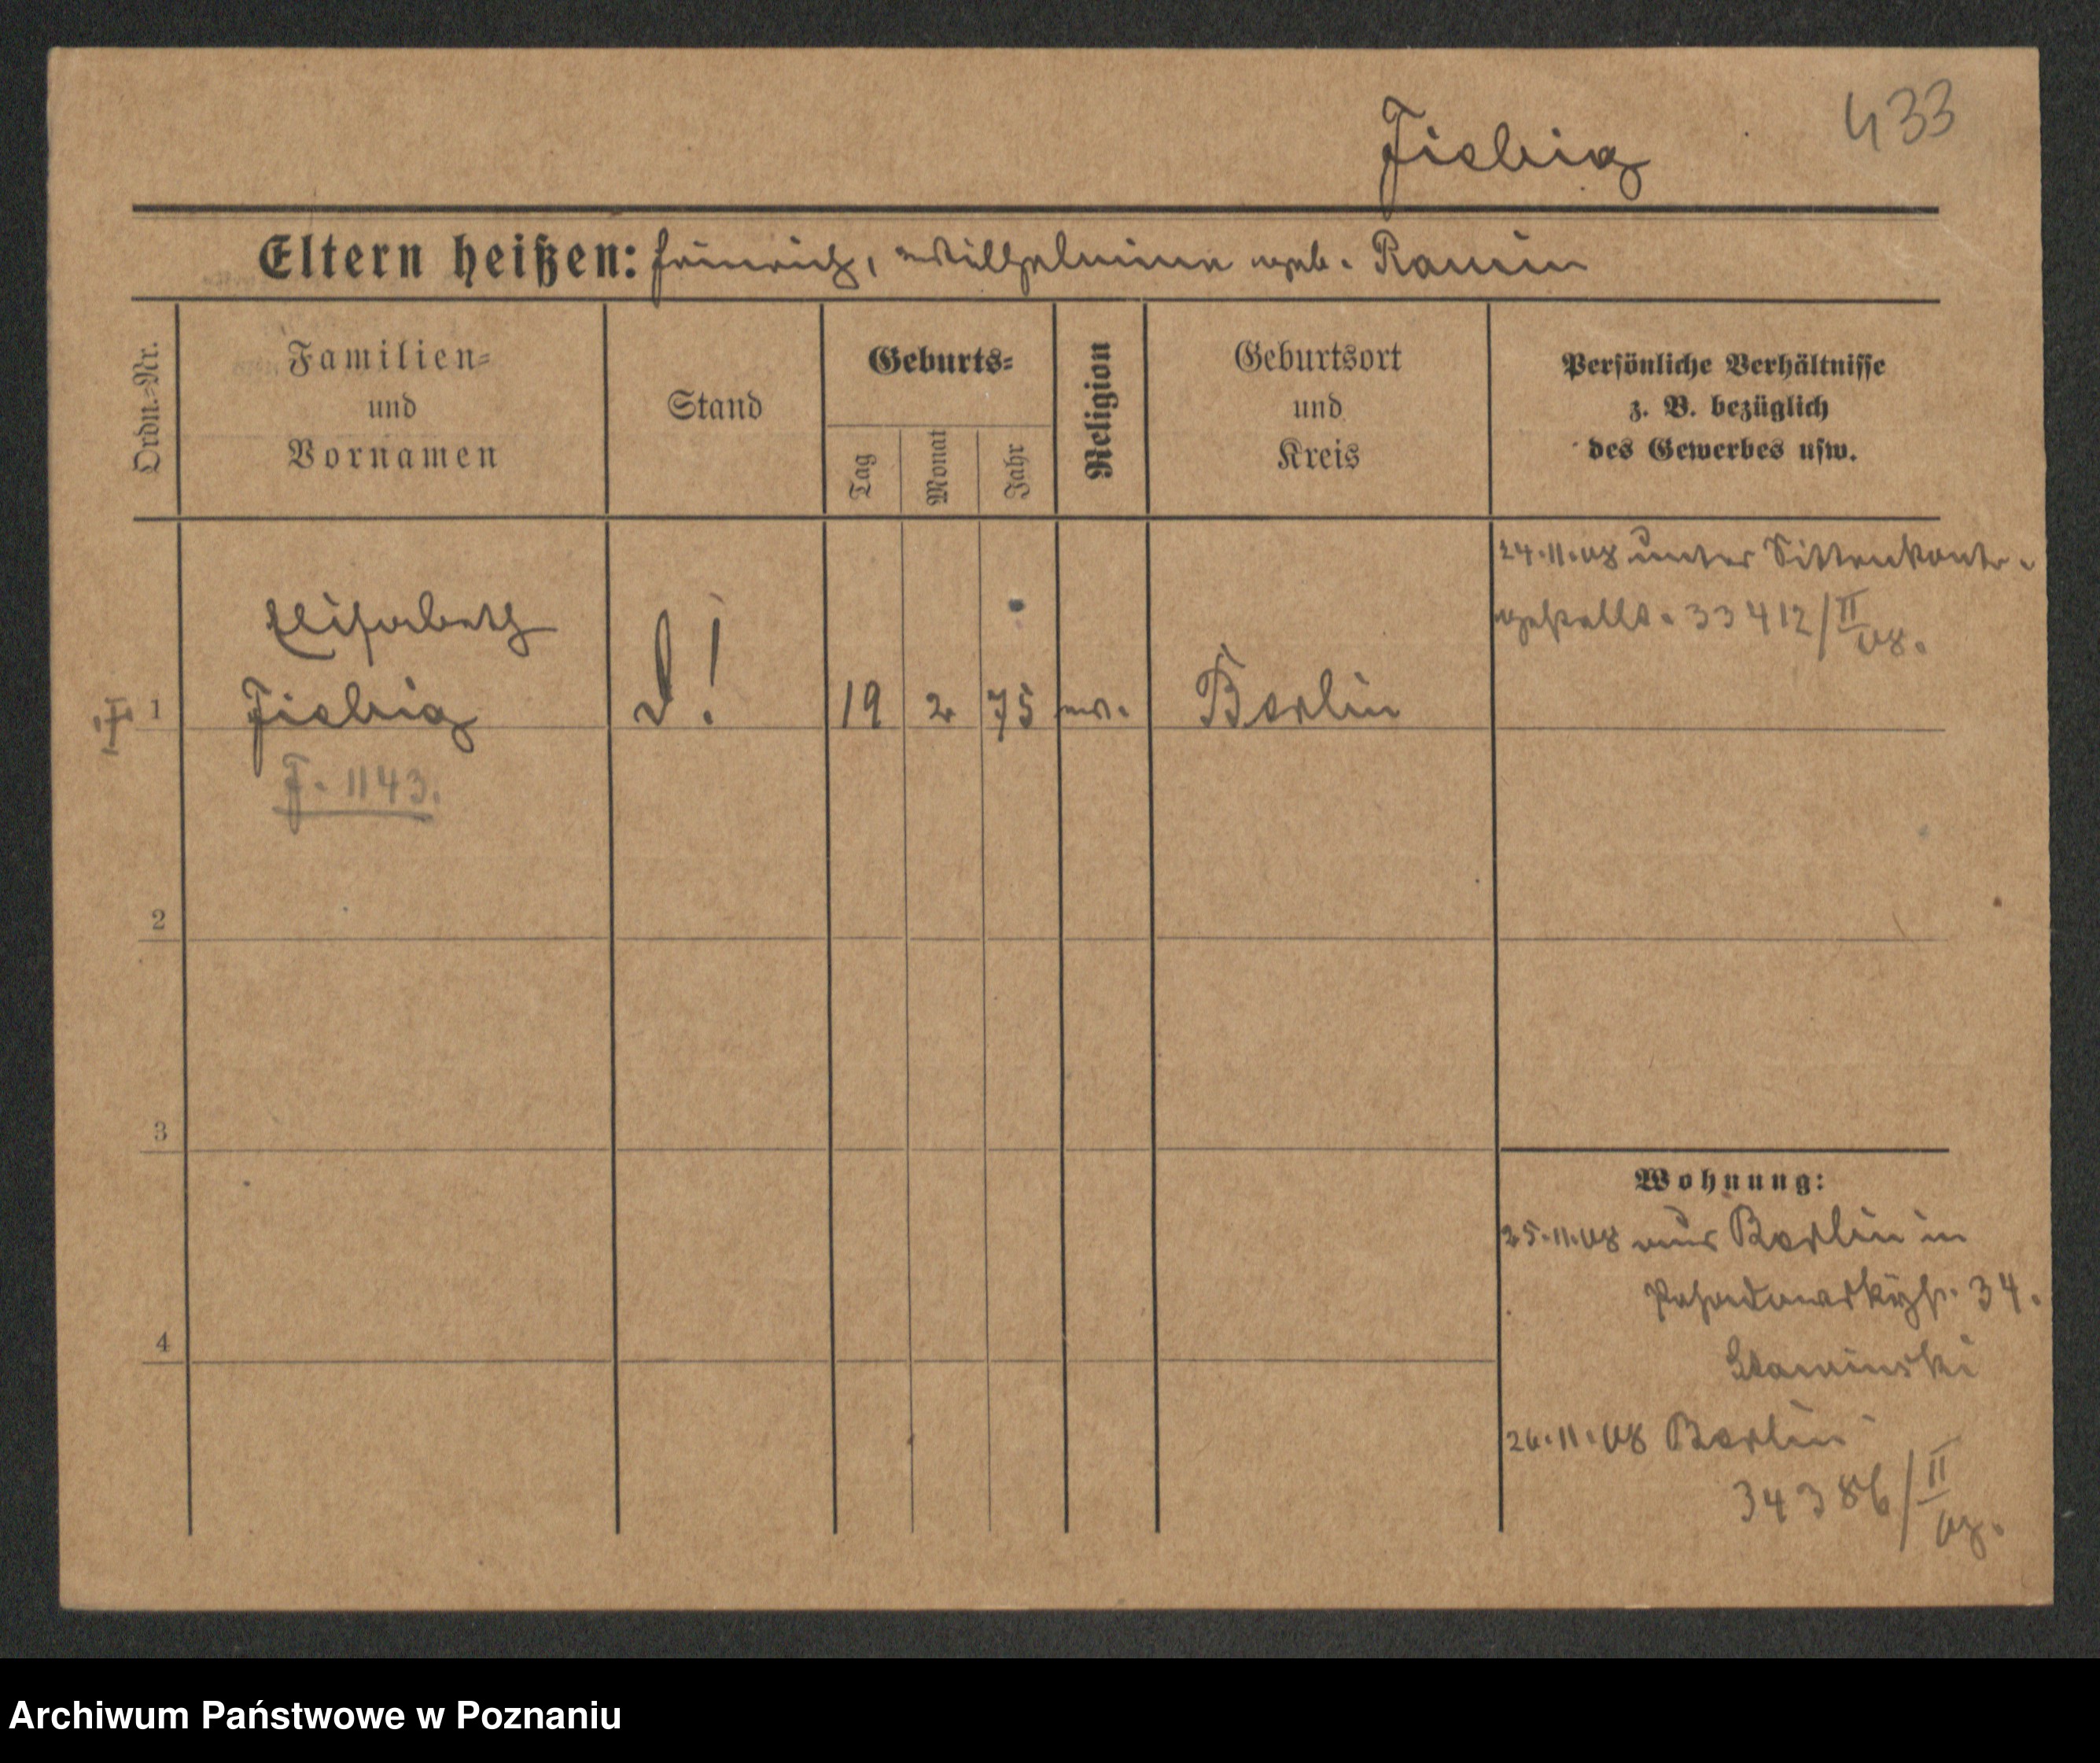 433
Fiebig
Eltern heißen: Heinrich, Wilhelmine geb. Ramin
Ordn.-Nr.
Familien-
und
Vornamen
Stand
Geburts-
Tag
Monat
Jahr
Religion
Geburtsort
und
Kreis
Persönliche Verhältnisse
z. B. bezüglich
des Gewerbes usw.
24.11.08 unter Sittenkontr.
gestellt. 33412/II
08.
Elisabeth
1 Fiebig
19 2 75 ev. Berlin
F. 1143.
2
3
4
Wohnung:
25.11.08 aus Berlin in
Posadowskystr. 34.
26.11.08 Berlin
34386/II
08.
Archiwum Państwowe w Poznaniu